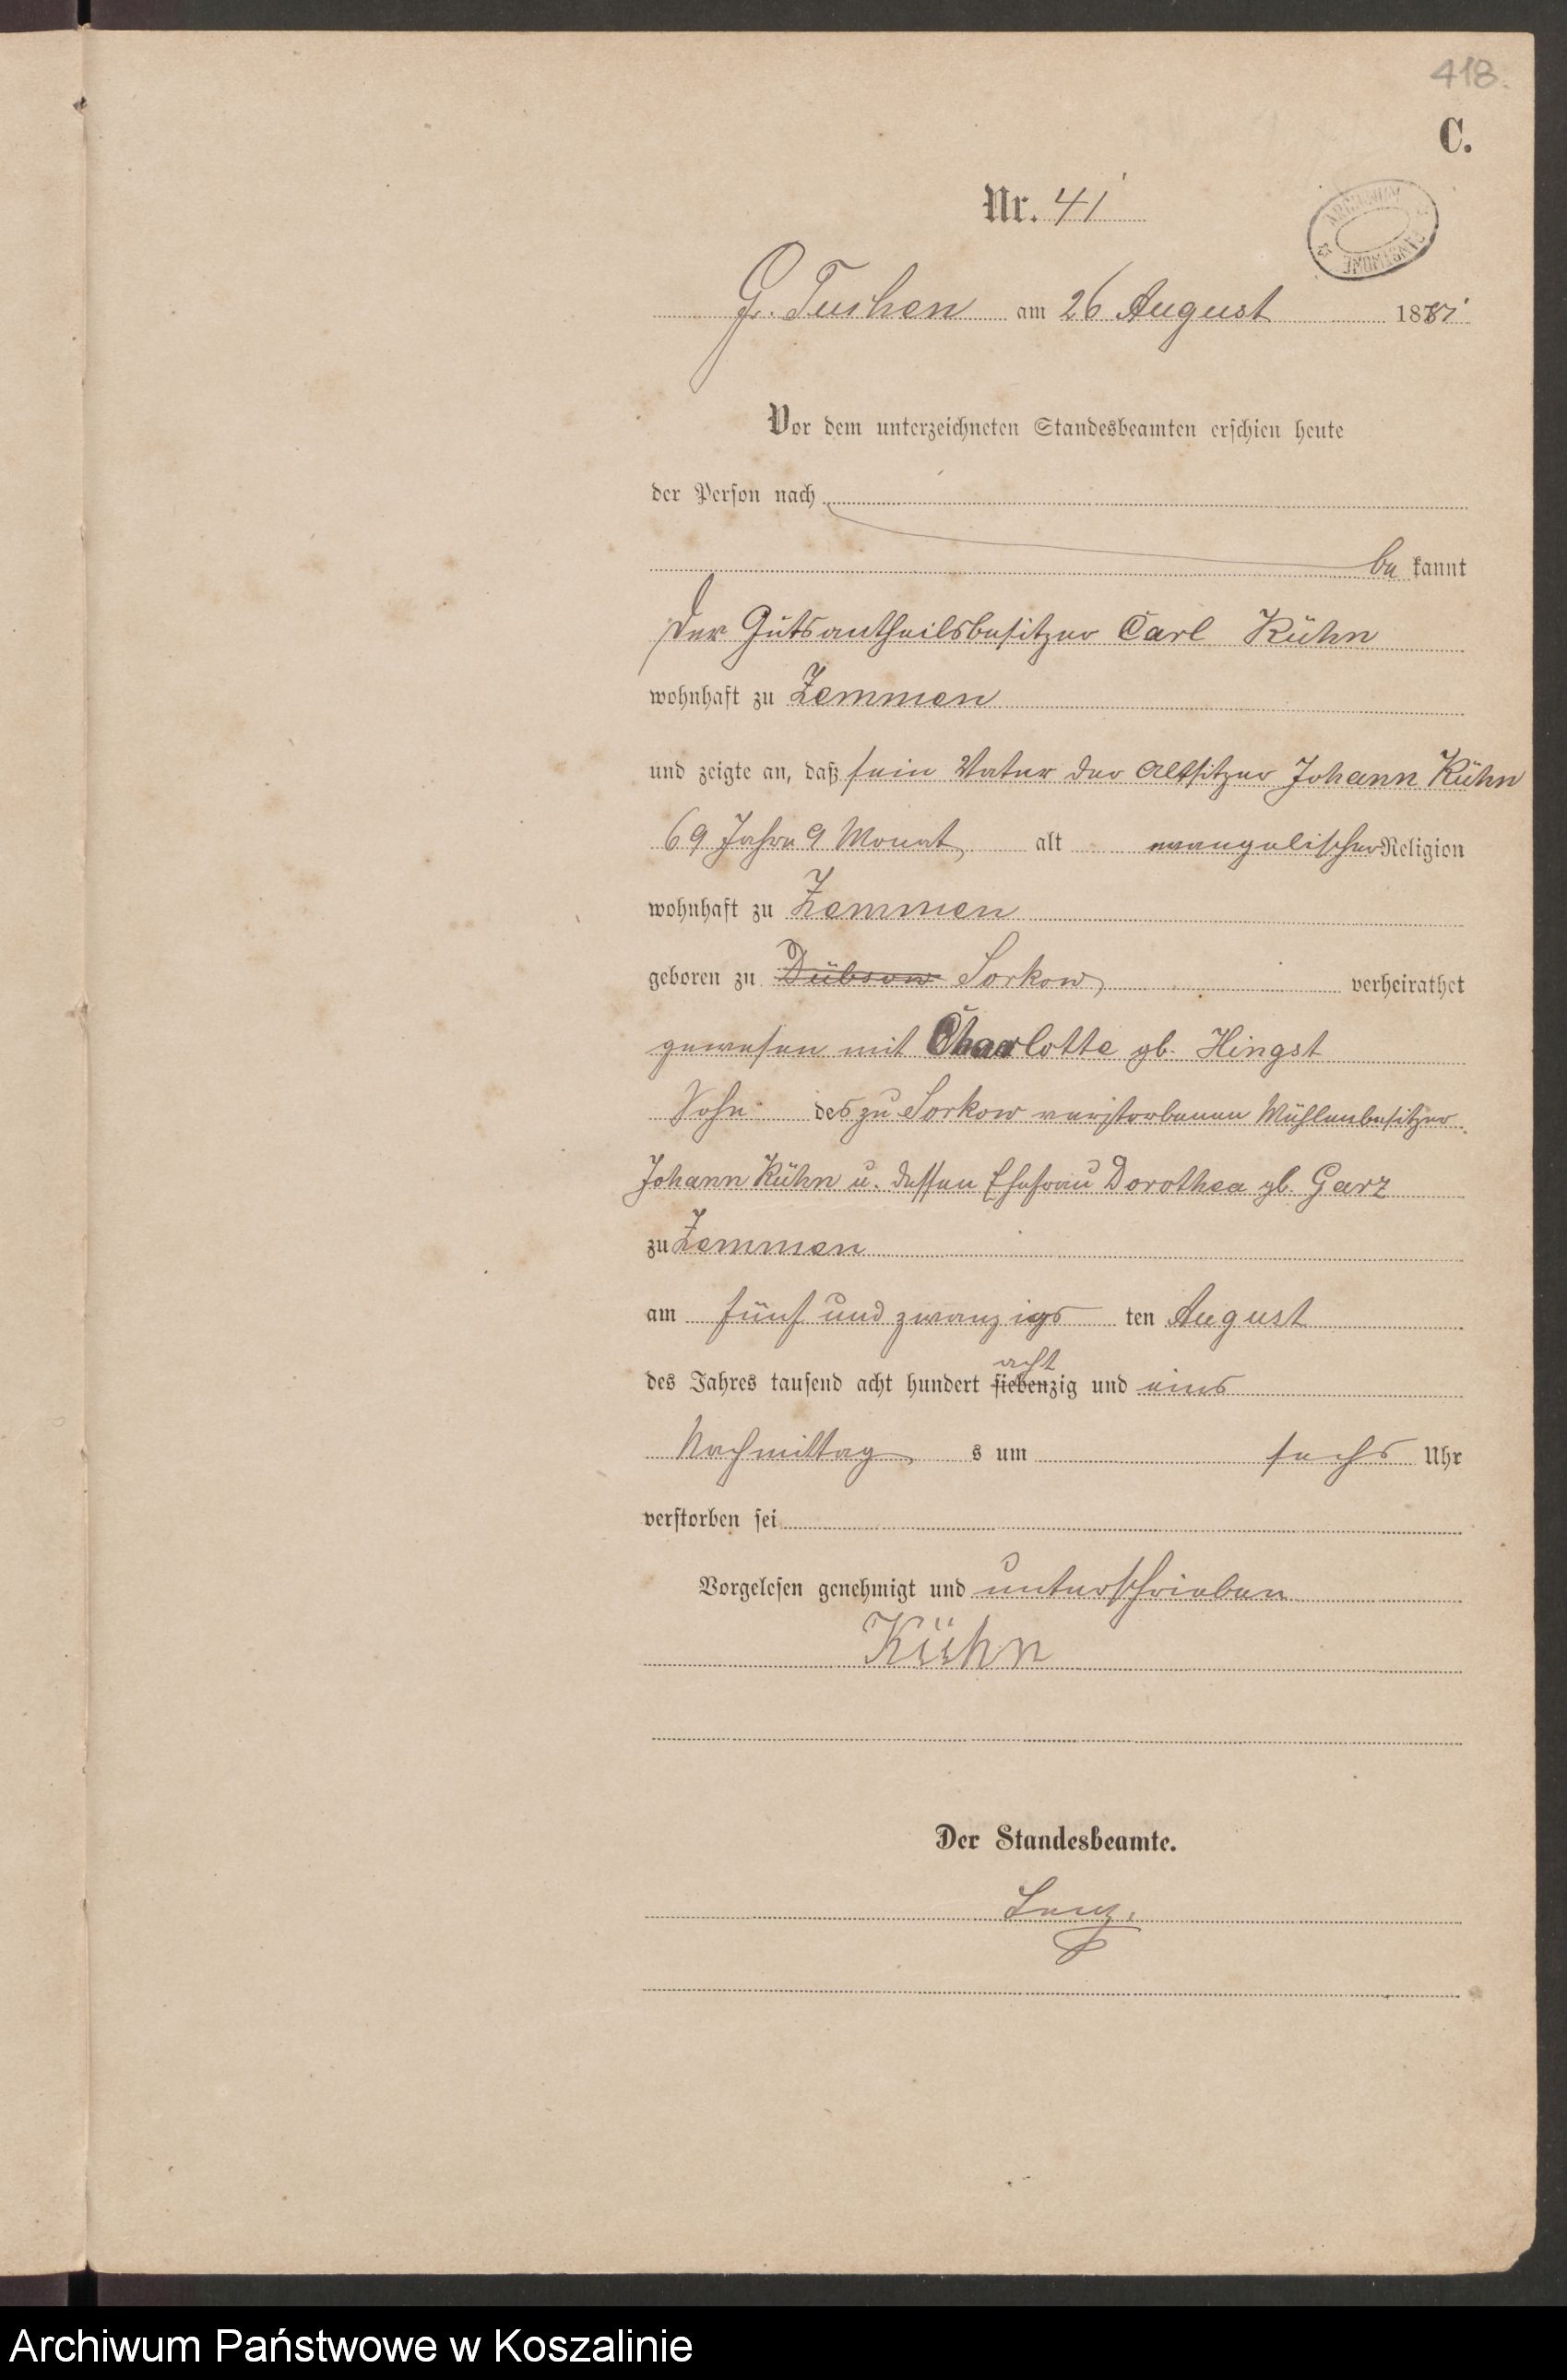 418.
C.
Nr. 41
ARCHIWUM PAŃSTWOWE
Gr. Tuchen am 26 August 1881
Vor dem unterzeichneten Standesbeamten erschien heute
der Person nach
be kannt
Der Gutsantheilsbesitzer Carl Kühn
wohnhaft zu Zemmen
und zeigte an, daß sein Vater der Altsitzer Johann Kühn
69 Jahre 9 Monat alt evangelischer Religion
wohnhaft zu Zemmen
geboren zu Dübsow Sorkow verheirathet
gewesen mit Charlotte gb. Hingst
Sohn des zu Sorkow verstorbenen Mühlenbesitzer
Johann Kühn u. dessen Ehefrau Dorothea gb. Garz
zu Zemmen
am fünf und zwanzigs ten August
acht
des Jahres tausend acht hundert siebenzig und eins
Nachmittag s um sechs Uhr
verstorben sei
Vorgelesen genehmigt und unterschrieben
Kühn
Der Standesbeamte.
Lenz.
Archiwum Państwowe w Koszalinie